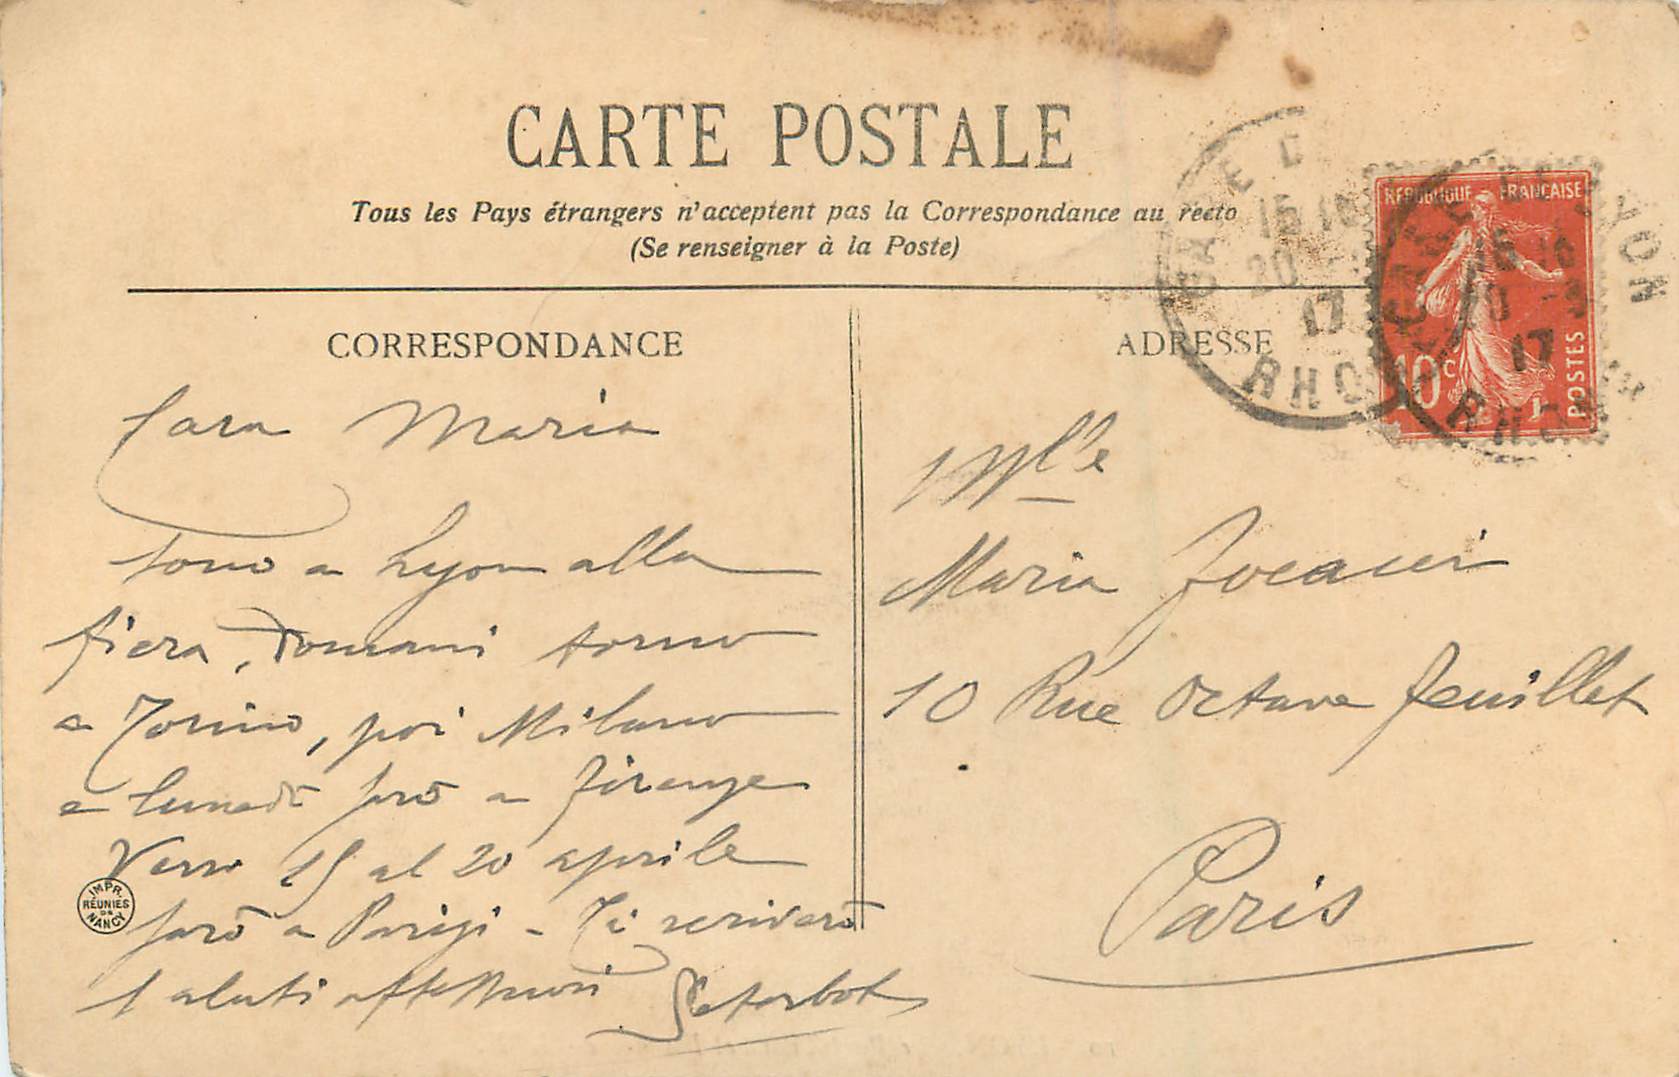 CARTE POSTALE
Tous les Pays étrangers n'acceptent pas la Correspondance au recto
(Se renseigner à la Poste)
CORRESPONDANCE
Cara Maria
sono a Lyon alla
fiera, Domani torno
a Torino, poi Milano
e lunedì sarò a Firenze
Verso 15 al 20 aprile
sarò a Parigi - Ti scriverò
Saluti affettuosi
IMPR.
RÉUNIES
DE
NANCY
ADRESSE
Mlle
Maria
10 Rue Octave Feuillet
Paris
REPUBLIQUE FRANÇAISE
10c
POSTES
GARE DE
15 10
20
17
RHONE
GARE DE LYON
15 10
20 -3
17
RHONE